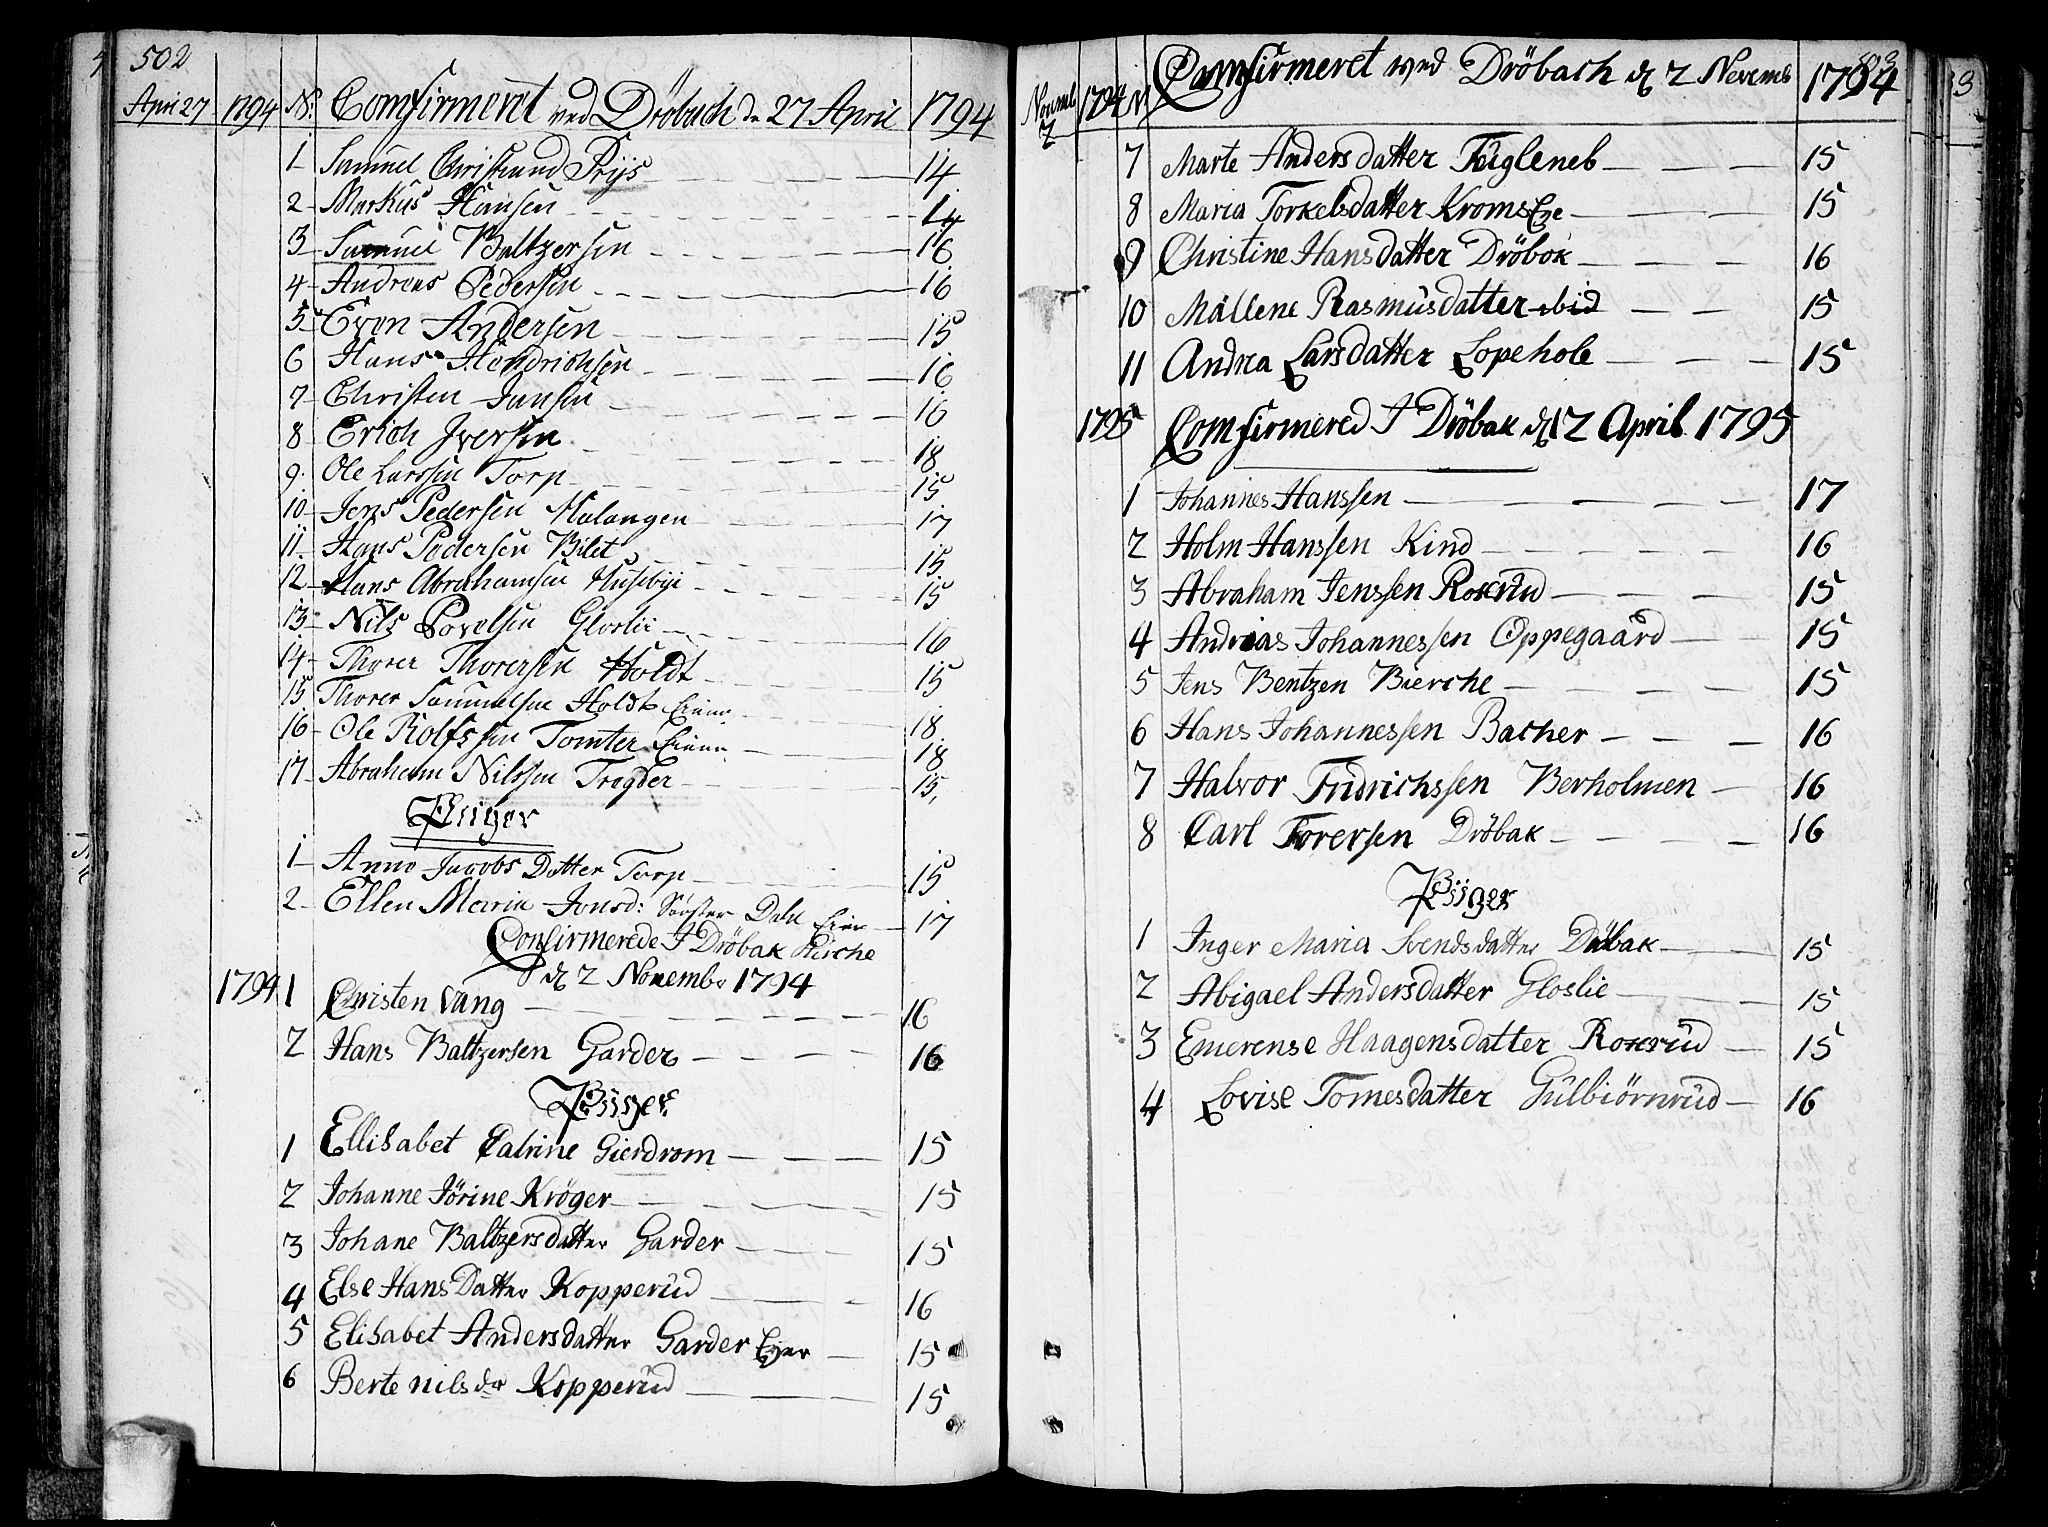 502
Apri 27 1794 N: Comfirmeret ved Dröbach de 27 April 1794
1 Samuel Christiand Prijs 14
2 Markus Hansen 14
3 Samuel Baltzersen 16
4 Andreas Pedersen 16
5 Even Andersen 15
6 Hans Hendrichsen 16
7 Christen Jansen 16
8 Erich Iversen 18
9 Ole Larssen Torp 15
10 Jens Pedersen Malangen 17
11 Hans Pedersen Bilet 15
12 Hans Abrahamsen Husebye 15
13 Nils Povelsen Gloslie 16
14 Thorer Thorersen Holdt 15
15 Thorer Samuelsen Holdt Eier 18
16 Ole Rolfssen Tomter Eier 18
17 Abraham Nilssen Tregder 15
Piiger
1 Anne Jacobs Datter Torp 15
2 Ellen Maria Jonsd: Dahl Eier 17
Confirmerede I Dröbak Kirche
d 2 Novembr 1794
1794 1 Christen Vang 16
2 Hans Baltzersen Garder 16
Piiger
1 Ellisabet Catrine Gierdrom 15
2 Johanne Jörine Kröger 15
3 Johane Baltzersdatter Garder 15
4 Else Hans Datter Kopperud 16
5 Elisabet Andersdatter Garder Eyer 15
6 Berte nils dr Kopperud 15
503
Novemb 2 1794 N Comfirmeret ved Dröbach d 2 Novemb 1794
7 Marte Andersdatter Fugleneb 15
8 Maria Torkelsdatter Kroms Eye 15
9 Christine Hansdatter Dröbok 16
10 Mallene Rasmusdatter ibid 15
11 Andrea Larsdatter Lopehole 15
1795 Comfirmered I Dröbak d 12 April 1795
1 Johannes Hanssen 17
2 Holm Hanssen Kind 16
3 Abraham Jenssen Roxrud 15
4 Andreas Johannessen Oppegaard 15
5 Jens Bentzen Bierche 15
6 Hans Johannessen Bacher 16
7 Halvor Fridrichssen Berholmen 16
8 Carl Torersen Dröbak 16
Piiger
1 Inger Maria Svendsdatter Dröbak 15
2 Abigael Andersdatter Gloslie 15
3 Emerense Haagensdatter Roxrud 15
4 Lovise Tomesdatter Gulbiörnrud 16